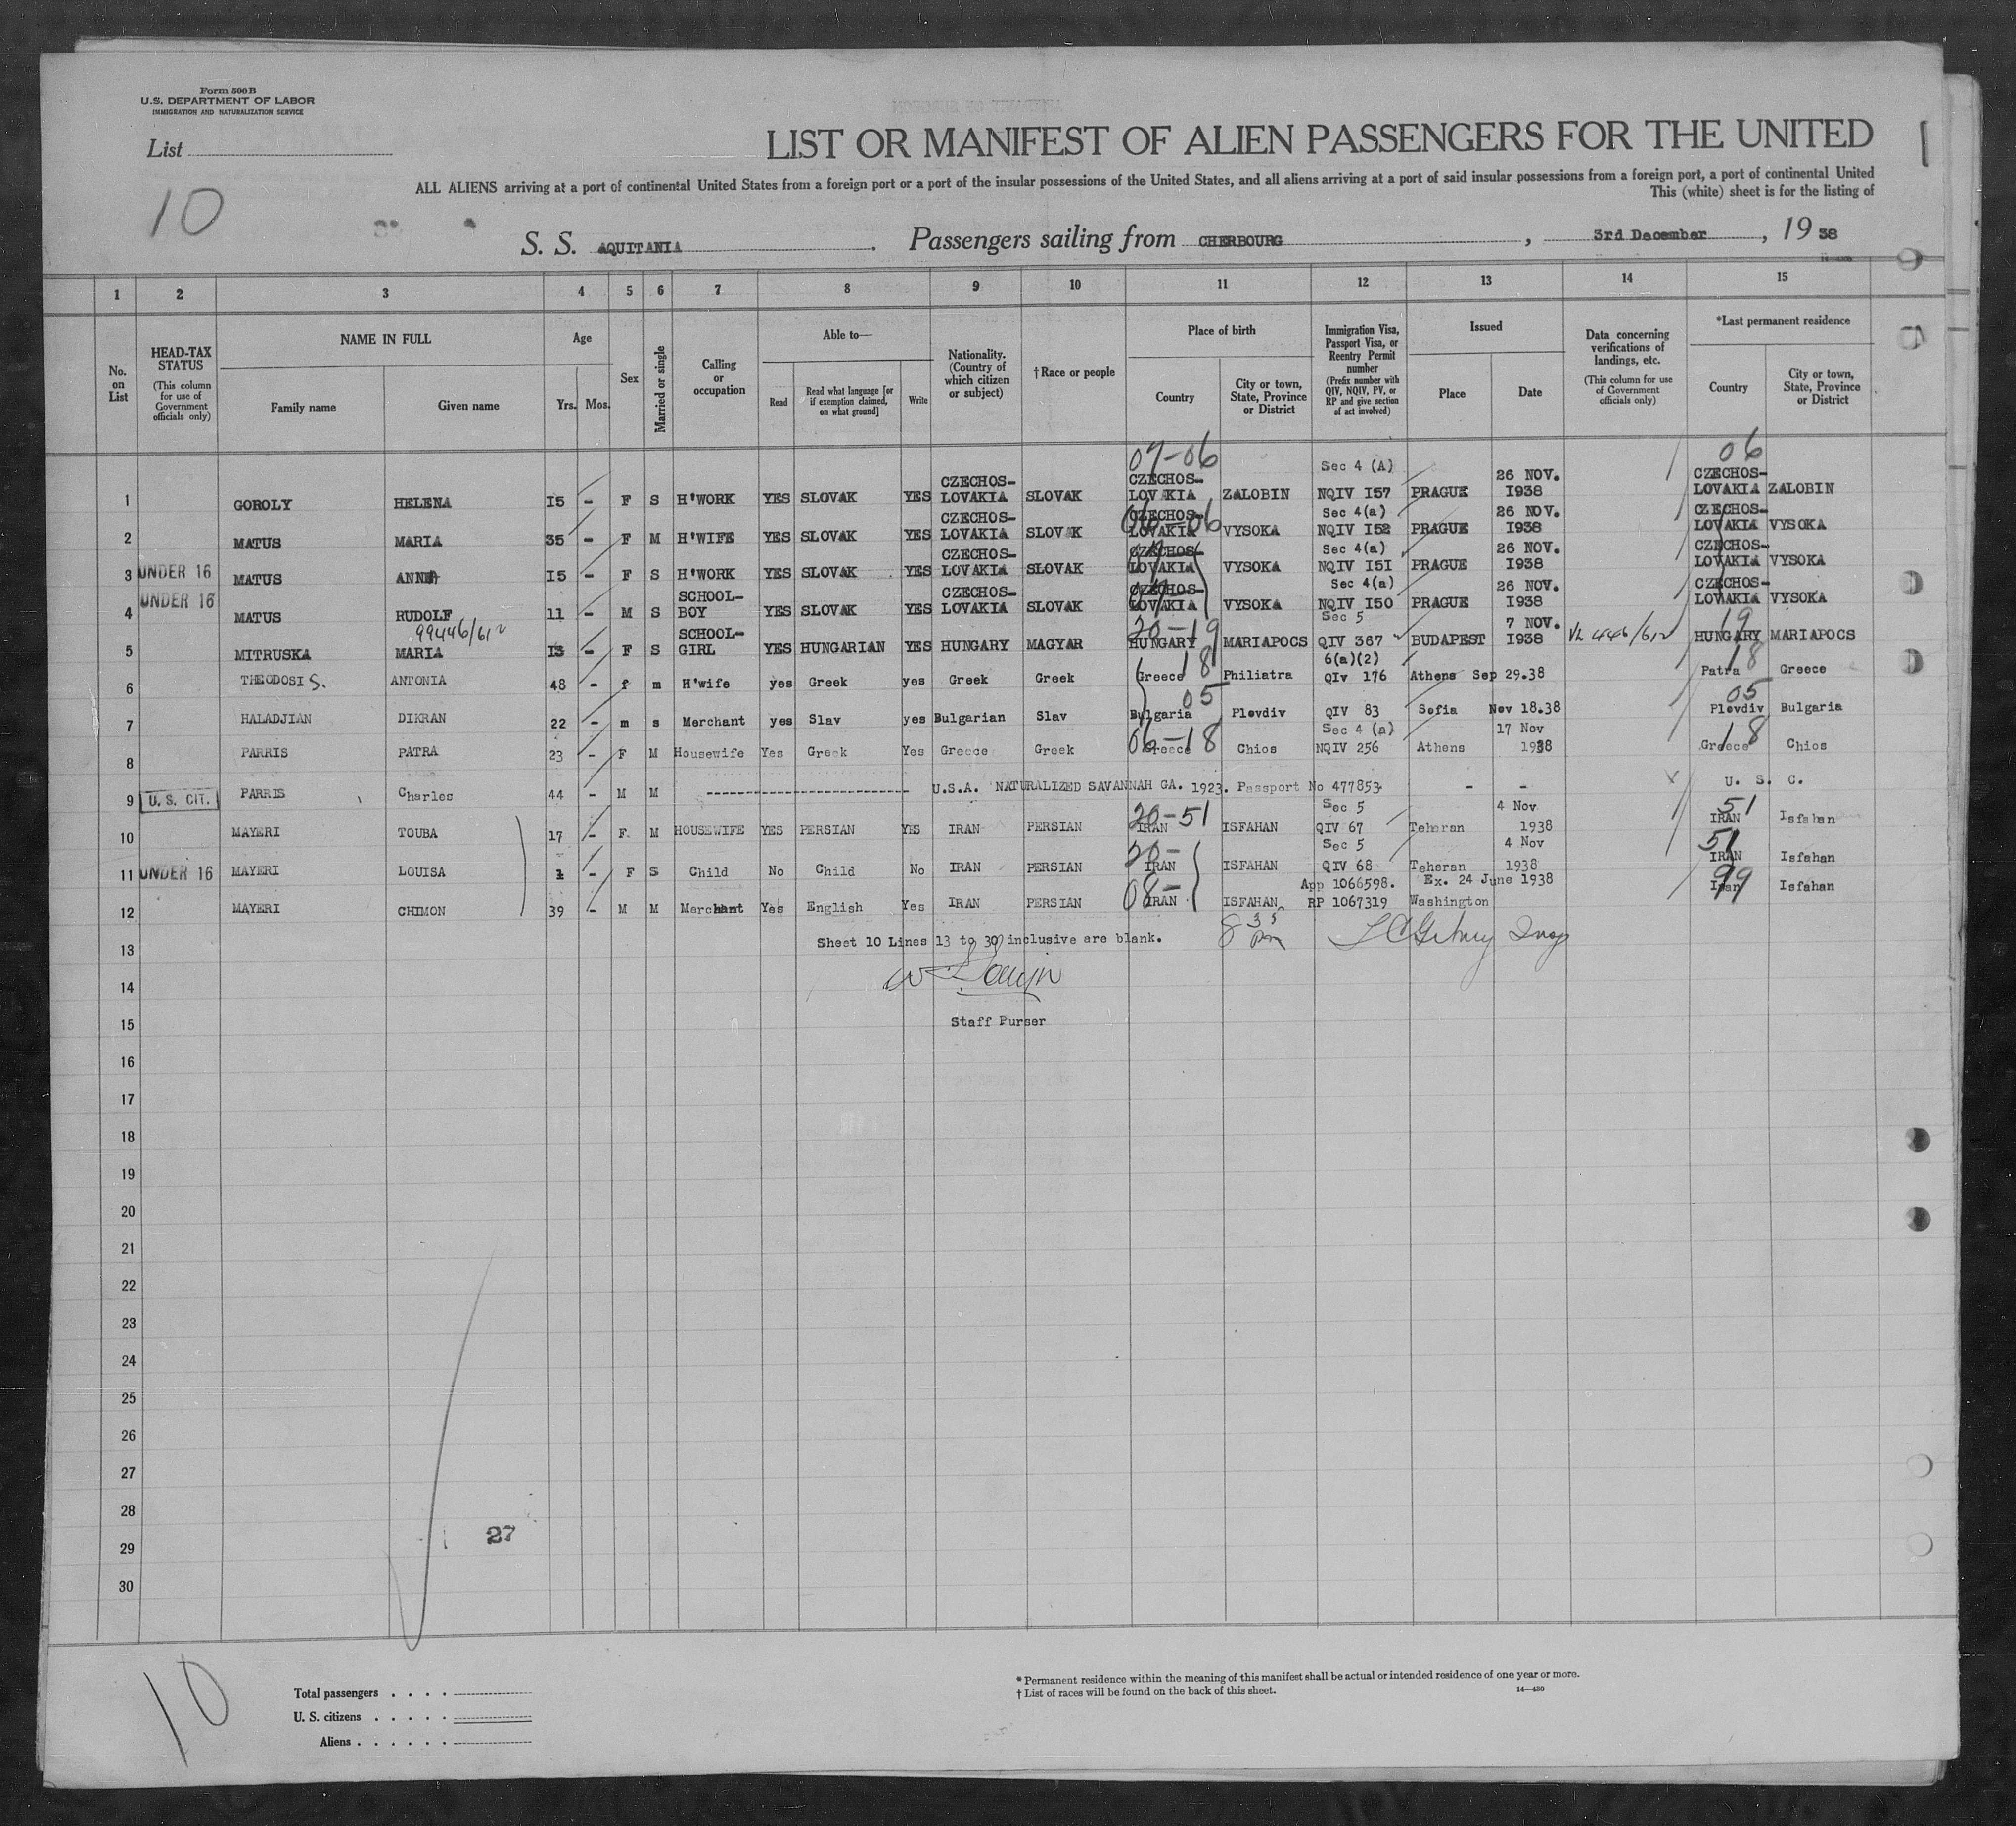 Form 500 B
U.S. DEPARTMENT OF LABOR
IMMIGRATION AND NATURALIZATION SERVICE
List
10
LIST OR MANIFEST OF ALIEN PASSENGERS FOR THE UNITED
ALL ALIENS arriving at a port of continental United States from a foreign port or a port of the insular possessions of the United States, and all aliens arriving at a port of said insular possessions from a foreign port, a port of continental United
This (white) sheet is for the listing of
S. S. AQUITANIA. Passengers sailing from CHERBOURG, 3rd December, 19 38
1 2 3 4 5 6 7 8 9 10 11 12 13 14 15
No. on List
HEAD-TAX STATUS (This column for use of Government officials only)
NAME IN FULL Family name Given name
Age Yrs. Mos.
Sex
Married or single
Calling or occupation
Able to— Read Read what language [or if exemption claimed, on what ground] Write
Nationality. (Country of which citizen or subject)
†Race or people
Place of birth Country City or town, State, Province or District
Immigration Visa, Passport Visa, or Reentry Permit number (Prefix number with QIV, NQIV, PV, or RP and give section of act involved)
Issued Place Date
Data concerning verifications of landings, etc. (This column for use of Government officials only)
*Last permanent residence Country City or town, State, Province or District
07-06 06
1 GOROLY HELENA I5 - F S H'WORK YES SLOVAK YES CZECHOS-LOVAKIA SLOVAK CZECHOS-LOVAKIA ZALOBIN Sec 4 (A) NQIV I57 PRAGUE 26 NOV. I938 CZECHOS-LOVAKIA ZALOBIN
2 MATUS MARIA 35 - F M H'WIFE YES SLOVAK YES CZECHOS-LOVAKIA SLOVAK CZECHOS-LOVAKIA 06-06 VYSOKA Sec 4(a) NQIV I52 PRAGUE 26 NOV. I938 CZECHOS-LOVAKIA VYSOKA
3 UNDER 16 MATUS ANNA I5 - F S H'WORK YES SLOVAK YES CZECHOS-LOVAKIA SLOVAK CZECHOS-LOVAKIA VYSOKA Sec 4(a) NQIV I5I PRAGUE 26 NOV. I938 CZECHOS-LOVAKIA VYSOKA
4 UNDER 16 MATUS RUDOLF 11 - M S SCHOOL-BOY YES SLOVAK YES CZECHOS-LOVAKIA SLOVAK CZECHOS-LOVAKIA VYSOKA Sec 4(a) NQIV I50 PRAGUE 26 NOV. I938 CZECHOS-LOVAKIA VYSOKA
99446/612
5 MITRUSKA MARIA I3 - F S SCHOOL-GIRL YES HUNGARIAN YES HUNGARY MAGYAR 20-19 HUNGARY MARIAPOCS Sec 5 QIV 367 BUDAPEST 7 NOV. I938 VL 446/612 19 HUNGARY MARIAPOCS
6 THEODOSI S. ANTONIA 48 - f m H'wife yes Greek yes Greek Greek Greece 18 Philiatra 6(a)(2) QIv 176 Athens Sep 29.38 18 Patra Greece
7 HALADJIAN DIKRAN 22 - m s Merchant yes Slav yes Bulgarian Slav 05 Bulgaria Plovdiv QIV 83 Sofia Nov 18.38 05 Plovdiv Bulgaria
8 PARRIS PATRA 23 - F M Housewife Yes Greek Yes Greece Greek 06-18 Greece Chios Sec 4 (a) NQIV 256 Athens 17 Nov 1938 18 Greece Chios
9 U. S. CIT. PARRIS Charles 44 - M M ---------------------- U.S.A. NATURALIZED SAVANNAH GA. 1923. Passport No 477853 - - x U. S. C.
10 MAYERI TOUBA 17 - F. M HOUSEWIFE YES PERSIAN YES IRAN PERSIAN 20-51 IRAN ISFAHAN Sec 5 QIV 67 Teheran 4 Nov 1938 51 IRAN Isfahan
11 UNDER 16 MAYERI LOUISA 1 - F S Child No Child No IRAN PERSIAN 20- IRAN ISFAHAN Sec 5 QIV 68 Teheran 4 Nov 1938 51 IRAN Isfahan
12 MAYERI CHIMON 39 - M M Merchant Yes English Yes IRAN PERSIAN 08- IRAN ISFAHAN App 1066598. RP 1067319 Ex. 24 June 1938 Washington 99 Iran Isfahan
13 Sheet 10 Lines 13 to 30 inclusive are blank. 8 35 pm
14
15 Staff Purser
16
17
18
19
20
21
22
23
24
25
26
27
28 27
29
30
10
Total passengers
U. S. citizens
Aliens
* Permanent residence within the meaning of this manifest shall be actual or intended residence of one year or more.
† List of races will be found on the back of this sheet.
14—430